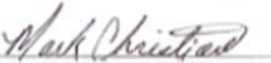 Mark Christian